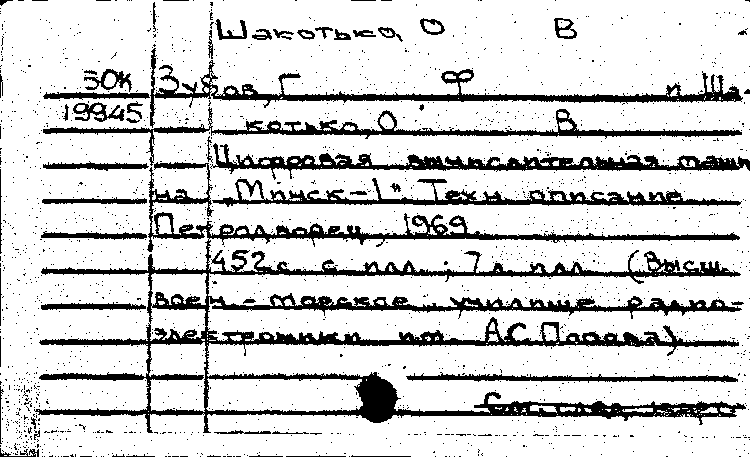 Шакотько, О В
30К Зубов, Г Ф и Ша-
19945 котько, О В
Цифровая вычислительная маши
на „Минск-1". Техн. описание.
Петродворец, 1969.
452 с. с илл.; 7 л. илл. (Высш.
воен.-морское училище радио-
электроники им. А.С. Попова).
См. след. карт.